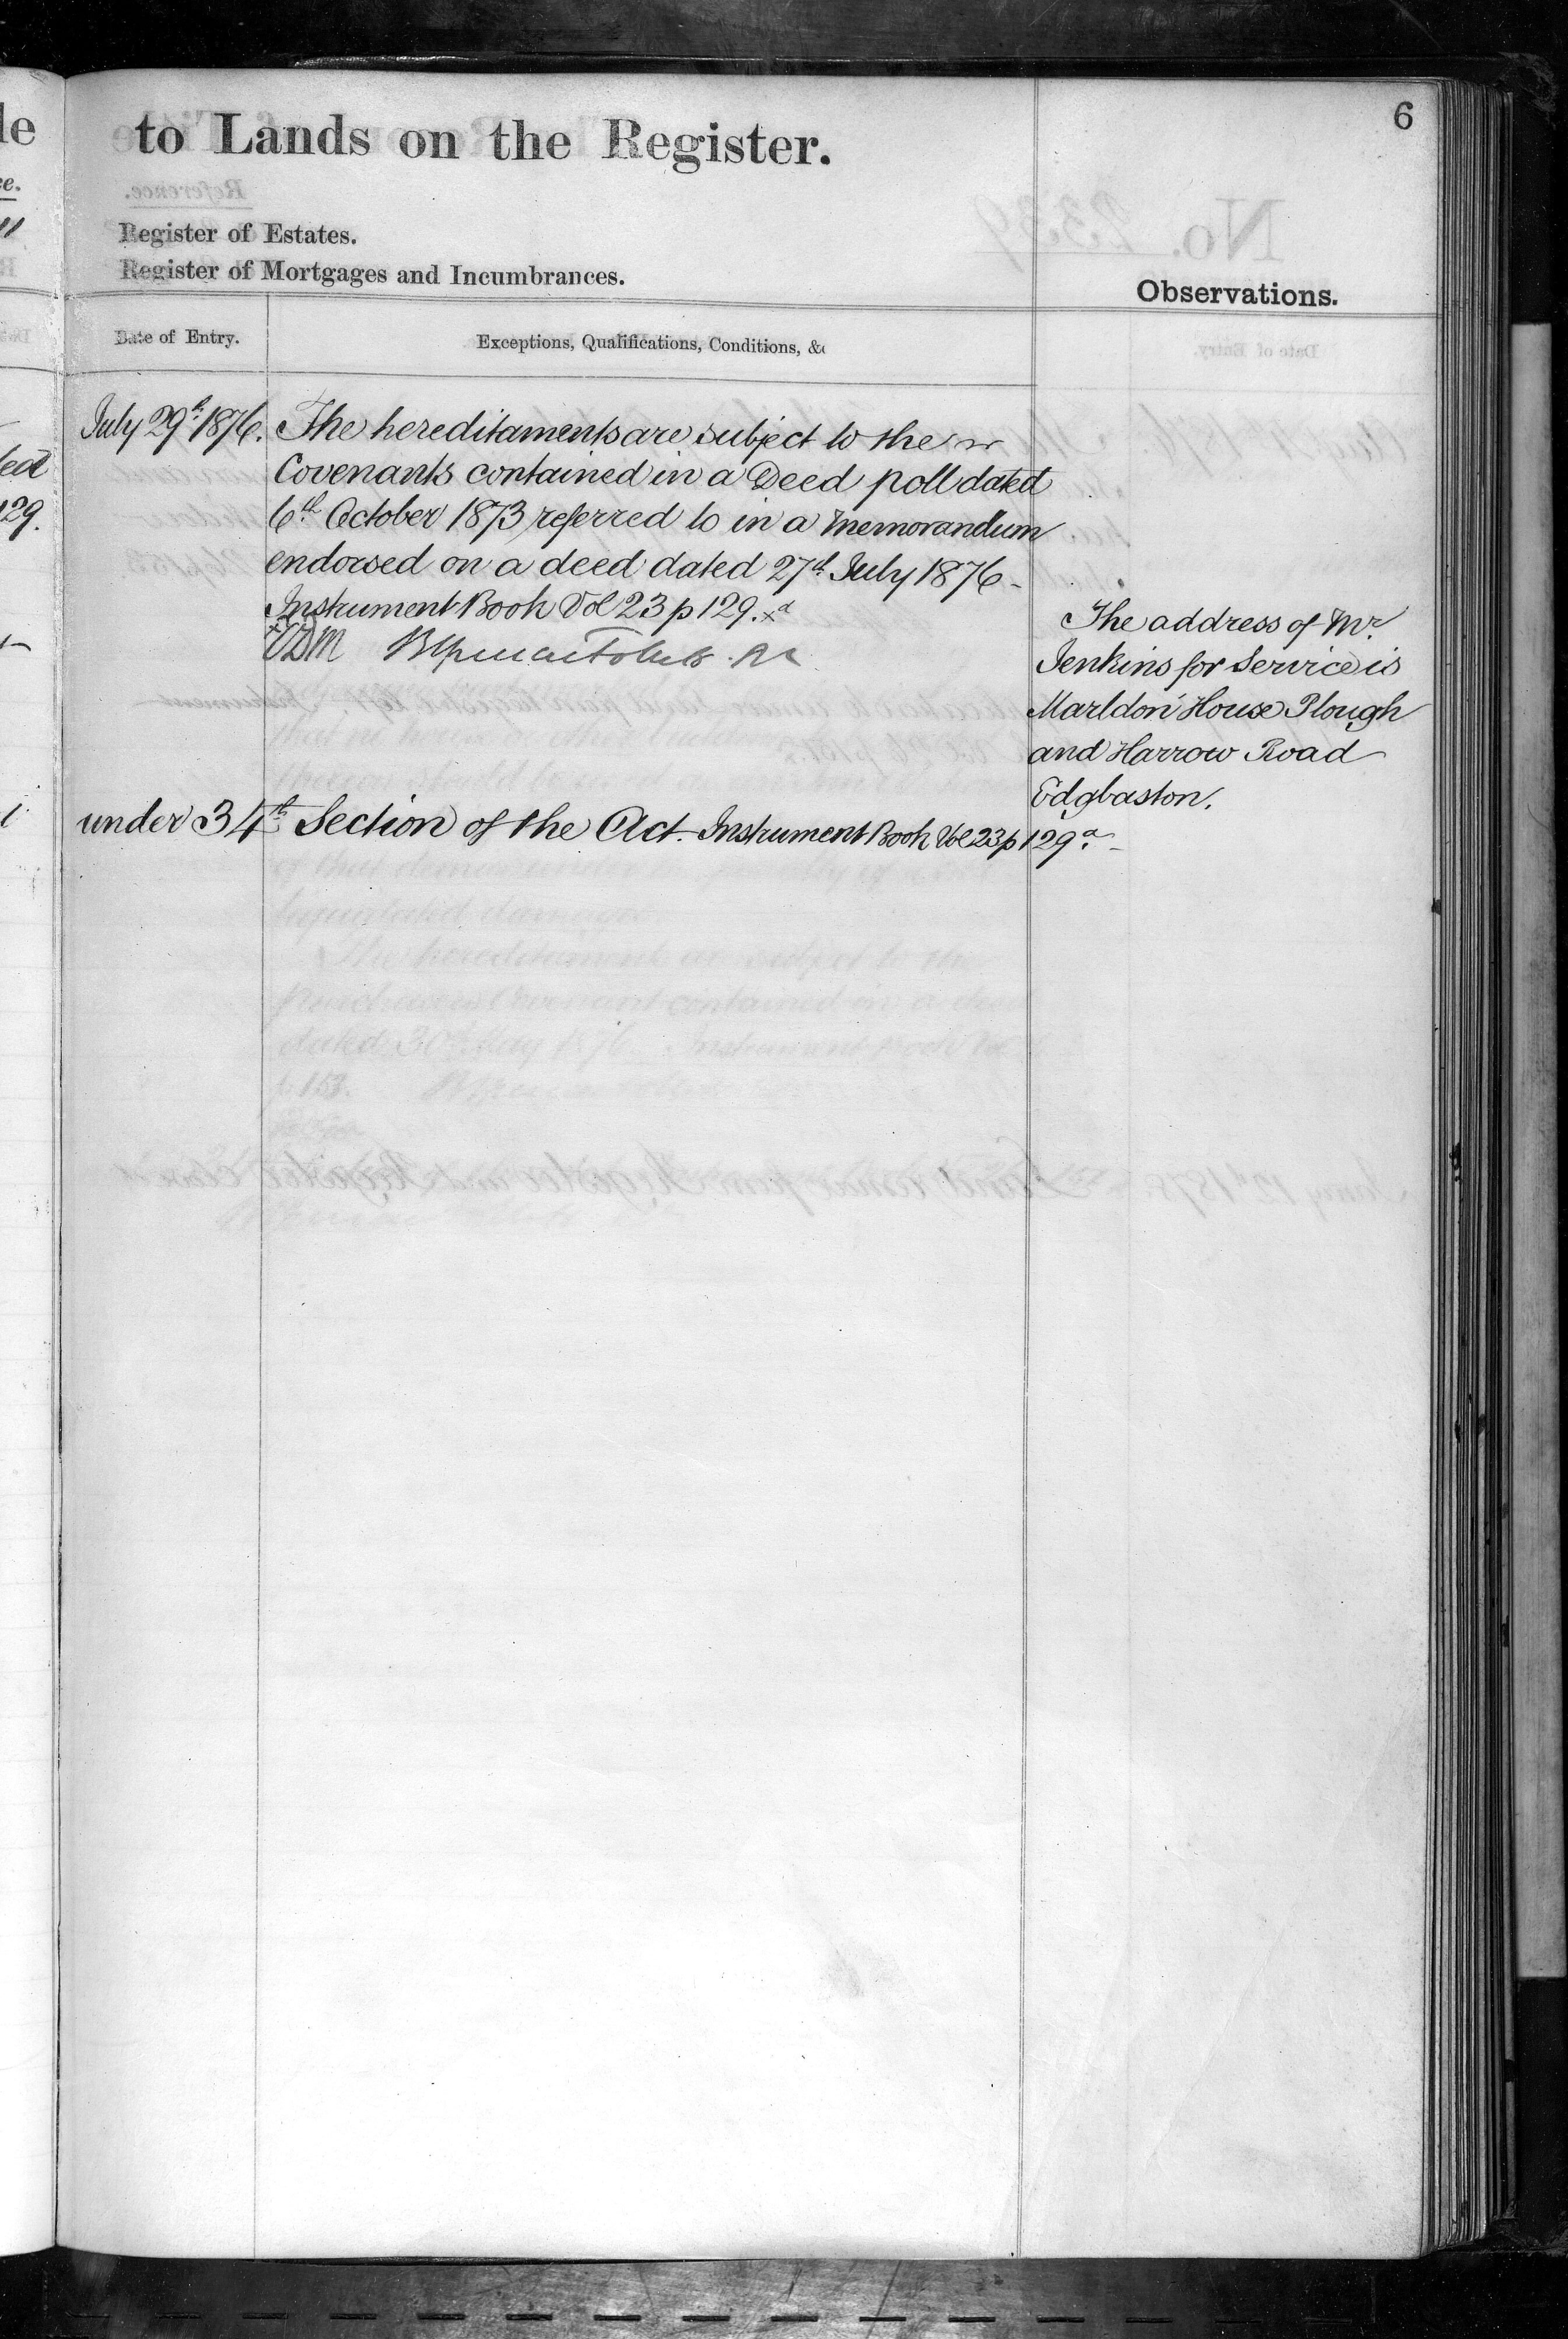 6
to Lands on the Register.
Register of Estates.
Register of Mortgages and Incumbrances.
Observations.
Date of Entry.
Exceptions, Qualifications, Conditions, &c
July 29th 1876.
The hereditaments are subject to the
Covenants contained in a Deed poll dated
6th October 1873 referred to in a Memorandum
endorsed on a deed dated 27th July 1876 -
Instrument Book Vol 23 p 129. x a
The address of Mr.
Jenkins for Service is
Marldon House Plough
and Harrow Road
Edgbaston.
under 34th Section of the Act. Instrument Book Vol 23 p 129 a. -